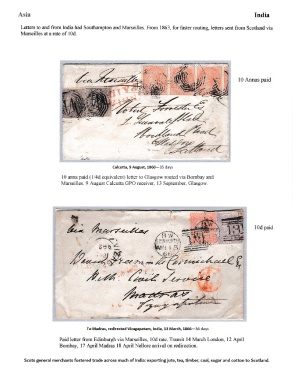 Asia
India
Letters to and from India had Southampton and Marseilles. From 1863, for faster routing, letters sent from Scotland via
Marseilles at a rate of 10d.
via Marseilles
10 Annas paid
Calcutta, 9 August, 1860—35 days
10 anna paid (1/4d equivalent) letter to Glasgow routed via Bombay and
Marseilles. 9 August Calcutta GPO receiver, 13 September, Glasgow.
10d paid
via Marseilles
Civil Service
Madras
To Madras, redirected Vizagapatam, India, 13 March, 1866—36 days
Paid letter from Edinburgh via Marseilles, 10d rate. Transit 14 March London, 12 April
Bombay, 17 April Madras 18 April Nellore arrival on redirection.
Scots general merchants fostered trade across much of India: exporting jute, tea, timber, coal, sugar and cotton to Scotland.